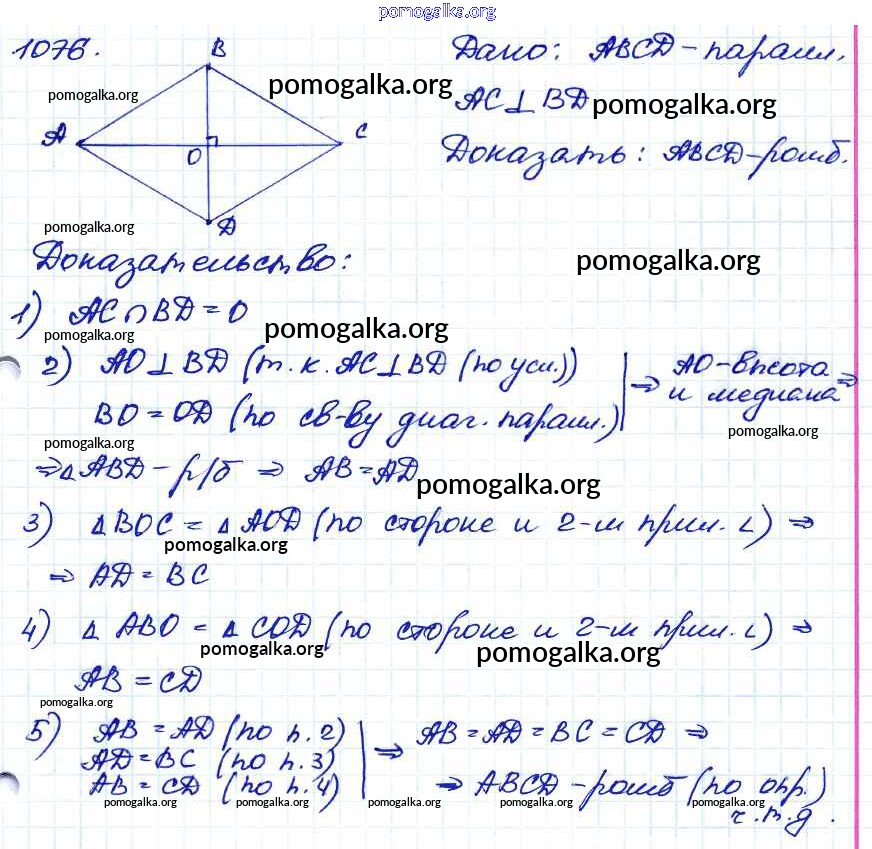 pomogalka.org
1076.
B
Дано: ABCD - парал.
pomogalka.org
pomogalka.org
AC ⊥ BD pomogalka.org
A
C
O
Доказать: ABCD - ромб.
D
pomogalka.org
Доказательство:
pomogalka.org
1) AC ∩ BD = O
pomogalka.org
pomogalka.org
2) AO ⊥ BD (т.к. AC ⊥ BD (по усл.)) | ⇒ AO - высота ⇒
BO = OD (по св-ву диаг. парал.) | и медиана
pomogalka.org
pomogalka.org
⇒ △ ABD - р/б ⇒ AB = AD
pomogalka.org
3) △ BOC = △ AOD (по стороне и 2-м прил. ∠) ⇒
pomogalka.org
⇒ AD = BC
4) △ ABO = △ COD (по стороне и 2-м прил. ∠) ⇒
pomogalka.org
pomogalka.org
AB = CD
pomogalka.org
5) AB = AD (по п. 2) | ⇒ AB = AD = BC = CD ⇒
AD = BC (по п. 3)
AB = CD (по п. 4) | ⇒ ABCD - ромб (по опр.)
pomogalka.org pomogalka.org pomogalka.org pomogalka.org pomogalka.org pomogalka.org
ч.т.д.